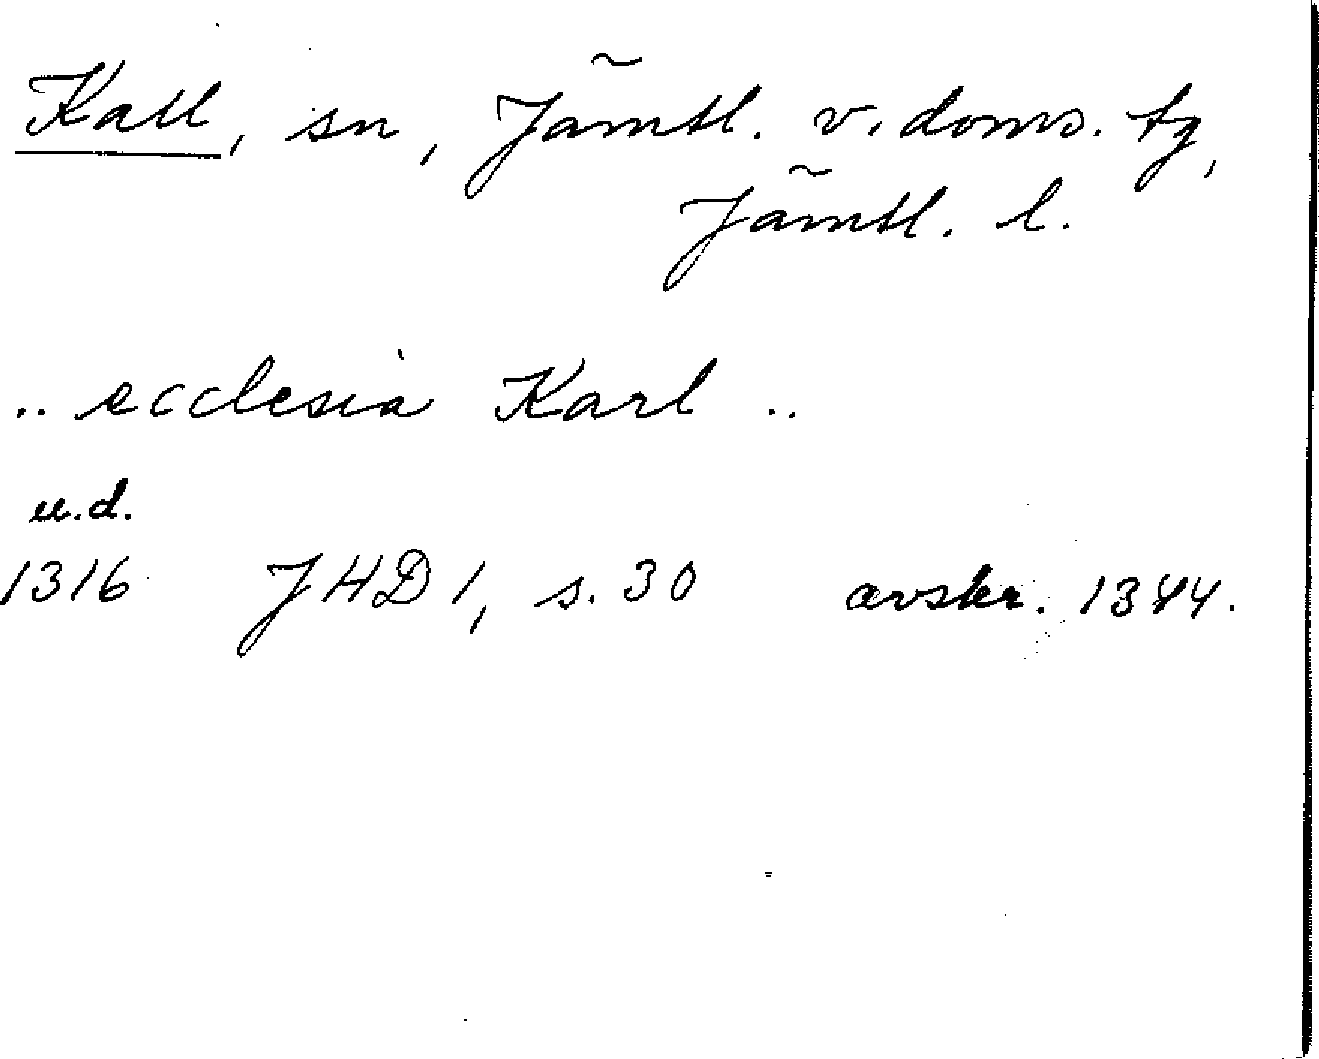 Kall, sn, Jämtl. v. doms. tg,
Jämtl. l.
.. ecclesia Karl ..
u.d.
1316 JHD 1, s. 30 avskr. 1344.